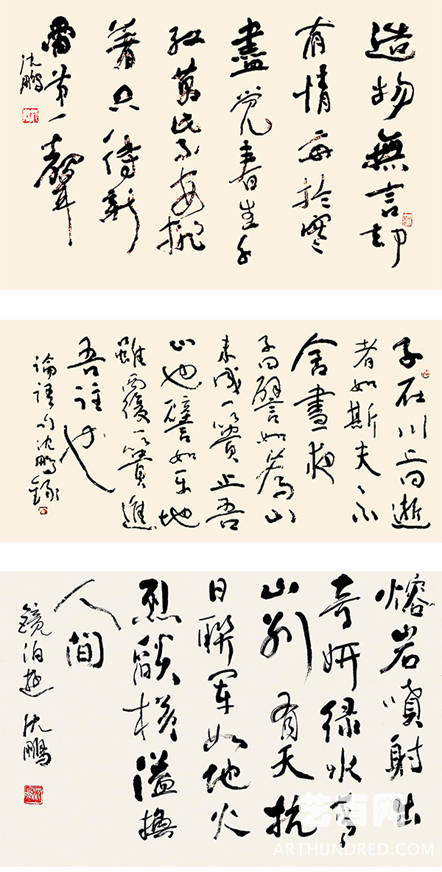 造物無言却
有情每於寒
盡覺春生千
紅萬紫安排
著只待新
雷第一聲
沈鵬
子在川上曰逝
者如斯夫不
舍晝夜
子曰譬如為山
未成一簣止吾
止也譬如平地
雖覆一簣進
吾往也
論語句沈鵬錄
熔岩噴射出
奇妍綠水青
山別有天抗
日聯軍如地火
烈燄橫溢換
人間
鏡泊遊 沈鵬
艺百网
ARTHUNDRED.COM